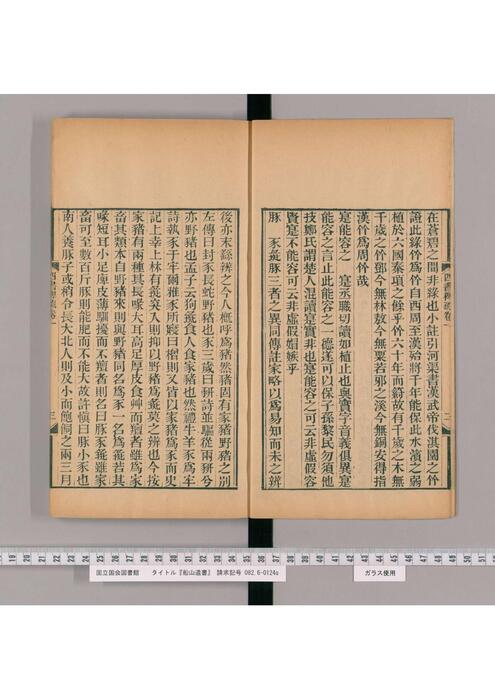 在蒼碧之間非綠也小註引河渠書漢武帝伐淇園之竹
證此綠竹為竹自西周至漢殆將千年能保此水濱之弱
植於六國秦項之餘乎竹六十年而籜故有千歲之木無
千歲之竹鄧今無林棼今無粟若邪之溪今無銅安得指
漢竹為周竹哉
寔能容之 寔丞職切讀如植止也與實字音義俱異寔
能容之言止此能容之一德遂可以保子孫黎民勿須他
技鄭氏謂楚人混讀寔實非也寔能容之可云非虛假容
賢寔不能容可云非虛假媢嫉乎
豚 豕彘豚三者之異同傳註家略以為易知而未之辨
後亦末繇辨之今人槪呼為豬然豬固有家豬野豬之別
左傳曰封豕長蛇野豬也豕三歲曰豜詩並驅從兩豜兮
亦野豬也孟子云狗彘食人食家豬也然禮牛羊豕為牢
詩執豕于牢爾雅豕所寢曰橧則又皆以家豬為豕而史
記上幸上林有彘突入則抑以野豬為彘突之辨也今按
家豬有兩種其長喙大耳高足厚皮食艸而㿗者雖為家
畜其類本自野豬來則與野豬同名為豕一名為彘若其
喙短耳小足庳皮薄驅擴而不㿗者則名曰豚豕彘雖家
畜可至數百斤豚則能肥而不能大故許愼曰豚小豕也
南人養豚子或稍令長大北人則及小而飽飼之兩三月
三
二
国立国会図書館 タイトル『船山遺書』 請求記号 082.6-0124o
ガラス使用